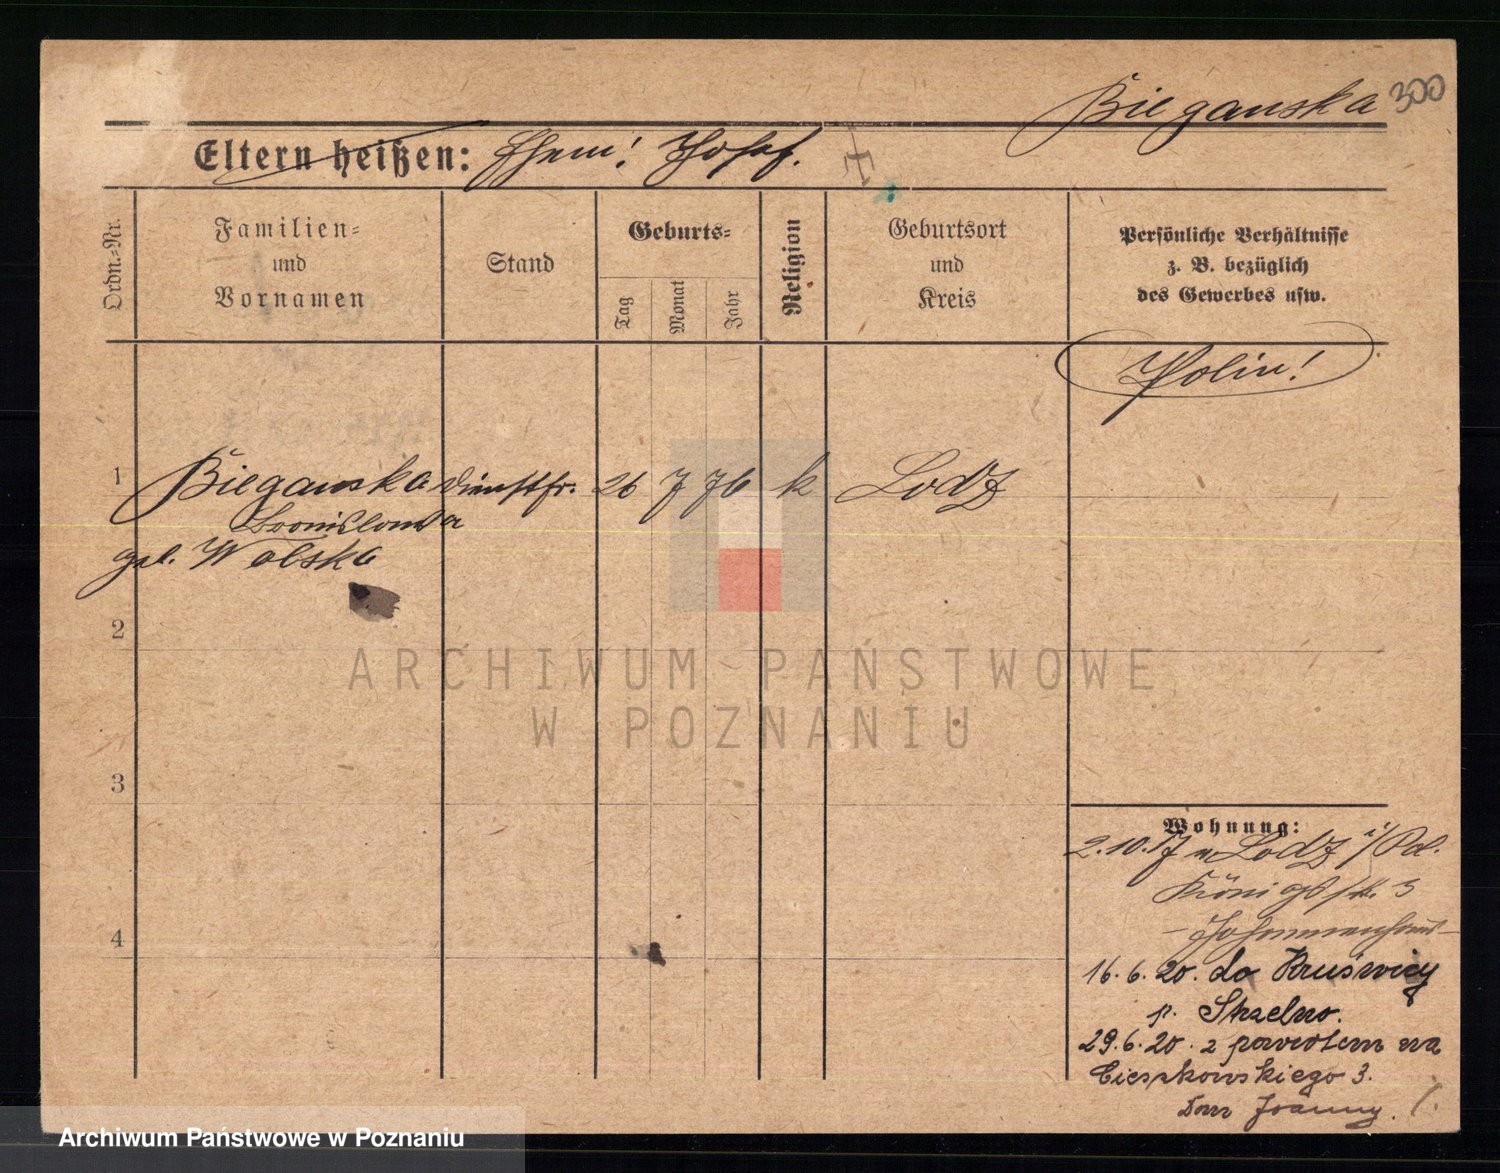 Bieganska 300
Eltern heißen: Ehem! Josef.
Ordn.-Nr.
Familien- und Vornamen
Stand
Geburts-
Tag
Monat
Jahr
Religion
Geburtsort und Kreis
Persönliche Verhältnisse
z. B. bezüglich
des Gewerbes usw.
Polin!
1 Bieganska Dienstfr. 26 7 76 k Lodz
Bronislawa
geb. Wolska
2
3
4
Wohnung:
2.10.17 v. Lodz i/Pol.
Königstr. 3
- Johannenhaus -
16.6.20. do Kruświcy
p. Strzelno.
29.6.20. z powrotem na
Cieszkowskiego 3.
Dom Joanny.
ARCHIWUM PAŃSTWOWE
W POZNANIU
Archiwum Państwowe w Poznaniu